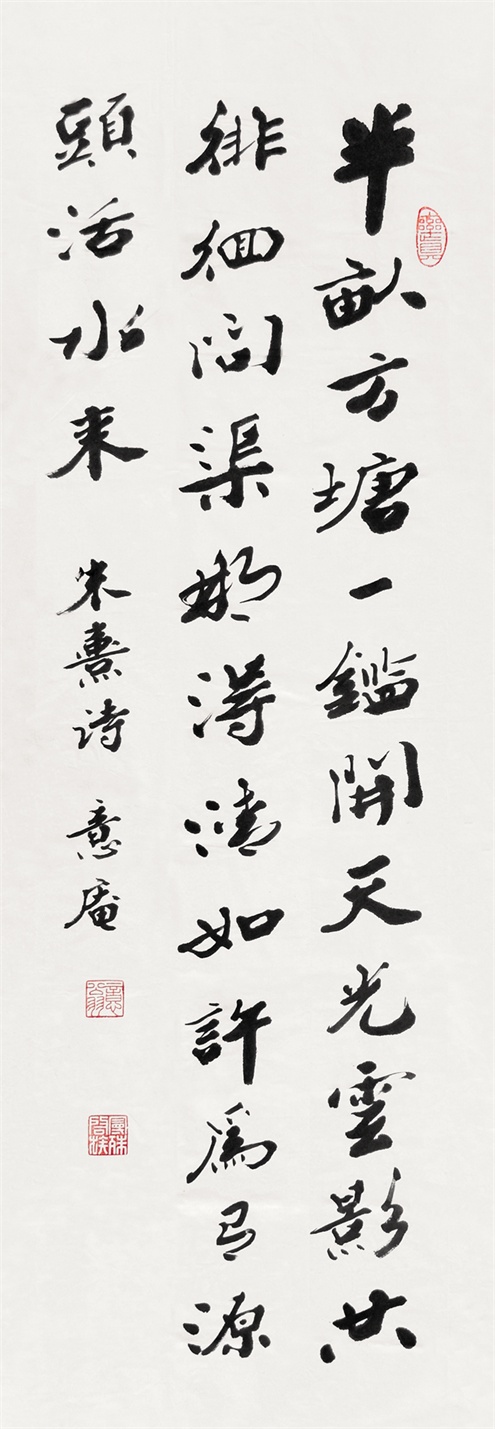 半畝方塘一鑑開天光雲影共
徘徊問渠那得清如許爲有源
頭活水来 朱熹诗 意庵
意翁